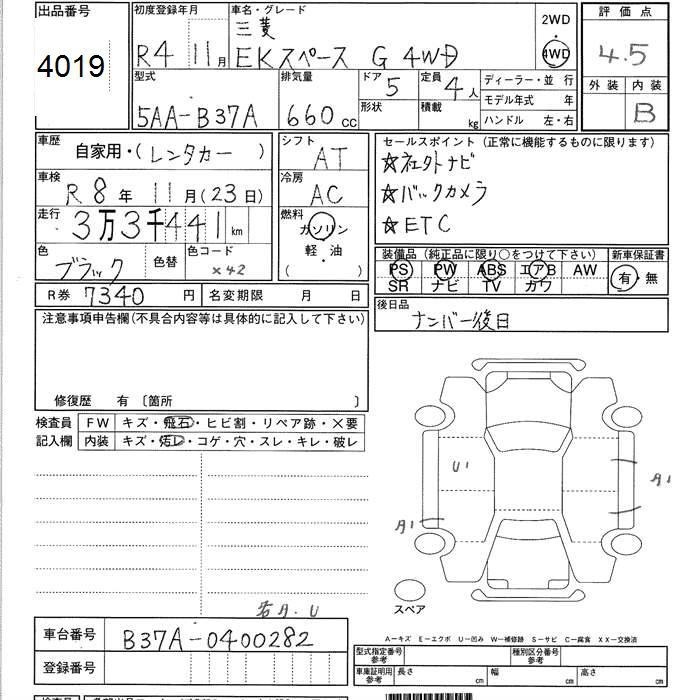 出品番号 4019
初度登録年月 R4 11月
車名・グレード 三菱
EKスペース G 4WD
2WD
4WD
評価点 4.5
外装 内装 B
型式 5AA-B37A
排気量 660cc
ドア 5
形状
定員 4人
積載 kg
ディーラー・並 行
モデル年式 年
ハンドル 左・右
車歴 自家用・(レンタカー)
車検 R8年 11月(23日)
走行 3万3千441km
色 ブラック 色替
色コード X42
シフト AT
冷房 AC
燃料 ガソリン
軽・油
( )
セールスポイント(正常に機能するものに限ります)
☆社外ナビ
☆バックカメラ
☆ETC
装備品(純正品に限り○をつけて下さい)
PS PW ABS エアB AW
SR ナビ TV カワ
新車保証書
有・無
R券 7340円 名変期限 月 日
後日品
ナンバー後日
注意事項申告欄(不具合内容等は具体的に記入して下さい)
修復歴 有〔箇所 〕
検査員
記入欄
FW キズ・飛石・ヒビ割・リペア跡・×要
内装 キズ・汚レ・コゲ・穴・スレ・キレ・破レ
U1
A1
A1
スペア
車台番号 B37A-0400282
登録番号
A-キズ E-エクボ U-凹み W-補修跡 S-サビ C-腐食 XX-交換済
型式指定番号 参考
種別区分番号 参考
車庫証明用 参考 長さ cm 幅 cm 高さ cm